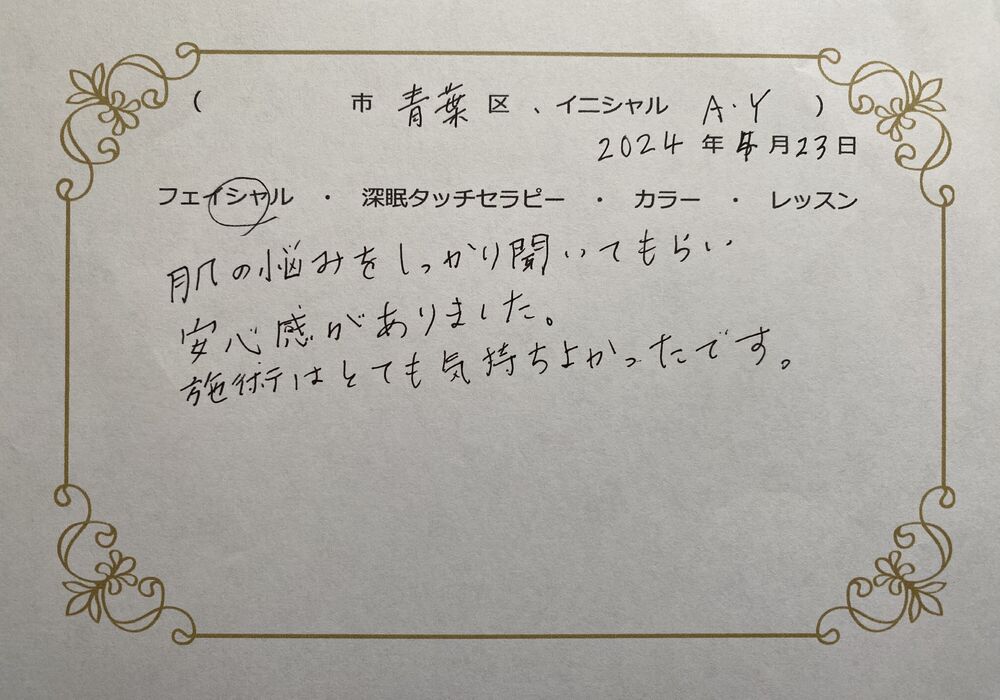 ( 市 青葉 区 、イニシャル A.Y )
2024 年 月 23 日
フェイシャル ・ 深眠タッチセラピー ・ カラー ・ レッスン
肌の悩みをしっかり聞いてもらい
安心感がありました。
施術はとても気持ちよかったです。